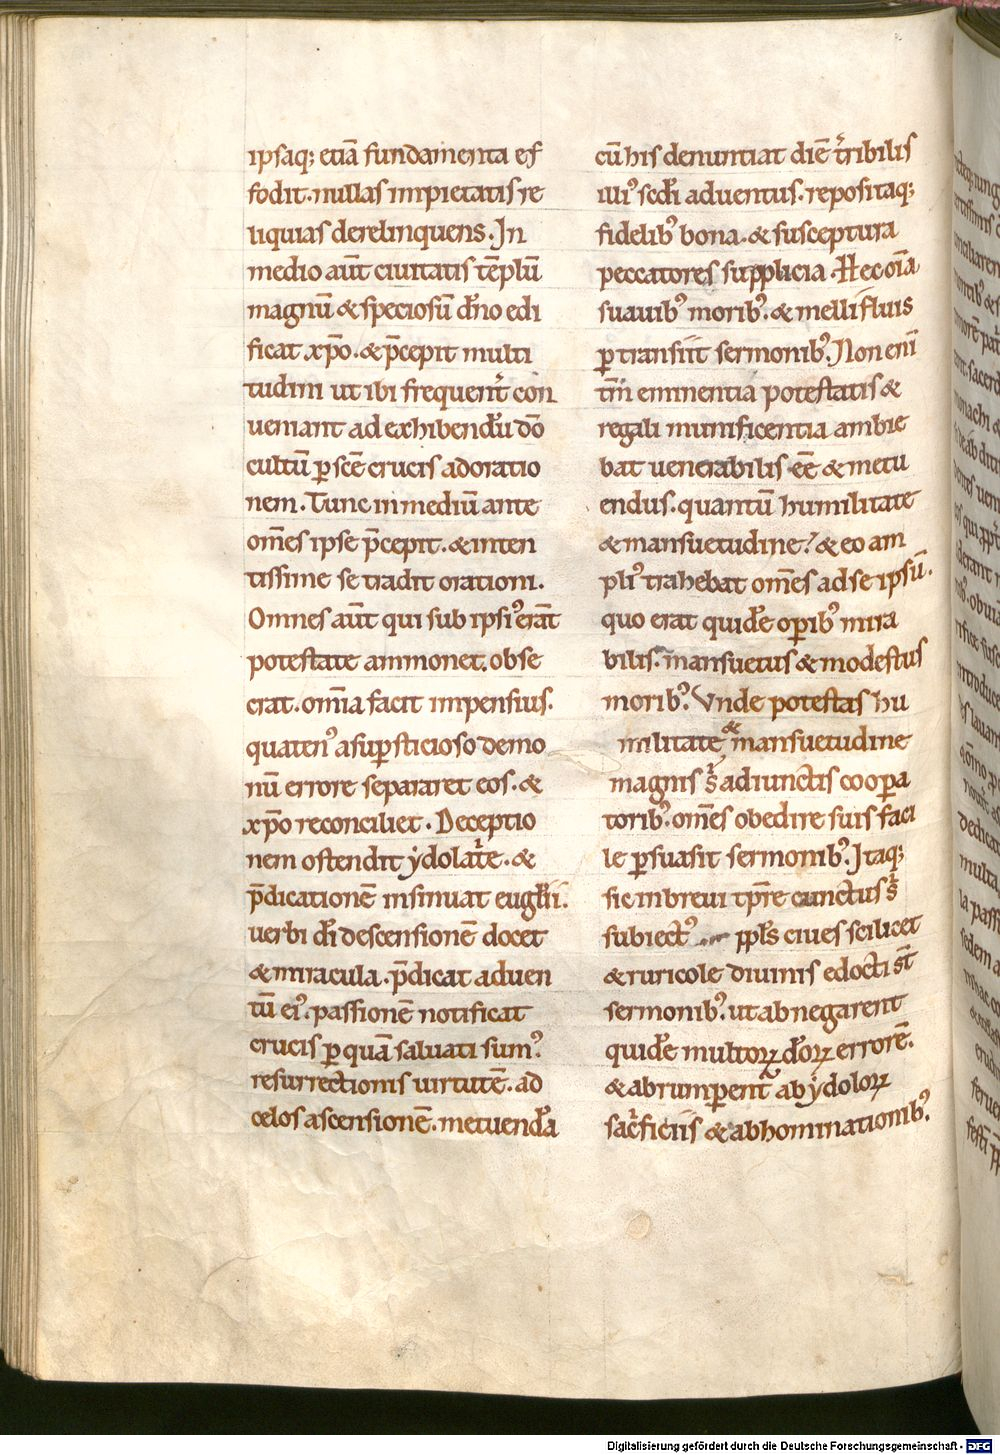 ipsaq; etiā fundamenta ef
fodit. nullas impietatis re
liquias derelinquens. In
medio aūt ciuitatis tēplū
magnū & speciosū dn̄o edi
ficat xp̄o. & p̄cepit multi
tudini ut ibi frequent᷑ con
ueniant ad exhibendū dō
cultū ꝑ scē crucis adoratio
nem. Tunc in mediū ante
om̄es ipse p̄cepit. & inten
tissime se tradit orationi.
Omnes aūt qui sub ipsiꝰ erāt
potestate ammonet. obse
crat. om̄ia facit impensius.
quatenꝰ a suꝑsticioso demo
nū errore separaret eos. &
xp̄o reconciliet. Deceptio
nem ostendit ẏdolat᷑e. &
p̄dicationē insinuat eugl̄ii.
uerbi dī descensionē docet
& miracula. p̄dicat aduen
tū eiꝰ. passionē notificat
crucis ꝑ quā saluati sumꝰ.
resurrectionis uirtutē. ad
celos ascensionē. metuend̄a
cū his denuntiat diē t᷑ribilis
illiꝰ scd̄i aduentus. repositaq;
fidelibꝰ bona. & susceptura
peccatores supplicia. Hec oīa
suauibꝰ moribꝰ. & mellifluis
ꝑtransiit sermonibꝰ. Non enī
tm̄ eminentia potestatis &
regali munificentia ambie
bat uenerabilis eē & metu
endus. quantū humilitate
& mansuetudine? & eo am
pliꝰ trahebat om̄es ad se ipsū.
quo erat quidē oꝑibꝰ mira
bilis. mansuetus & modestus
moribꝰ. Vnde potestas hu
militate & mansuetudine
magnis s᷑ adiunctis cooꝑa
toribꝰ. om̄es obedire suis faci
le ꝑsuasit sermonibꝰ. Itaq;
sic in breui tp̄re cunctus s᷑
subiectꝰ ppl̄s ciues scilicet
& ruricole diuinis edocti st̄
sermonibꝰ. ut abnegarent
quidē multoꝝ d̄oꝝ errorē.
& abrumꝑent᷑ ab ẏdoloꝝ
sac᷑ficiis & abhominationibꝰ.
Digitalisierung gefördert durch die Deutsche Forschungsgemeinschaft - DFG